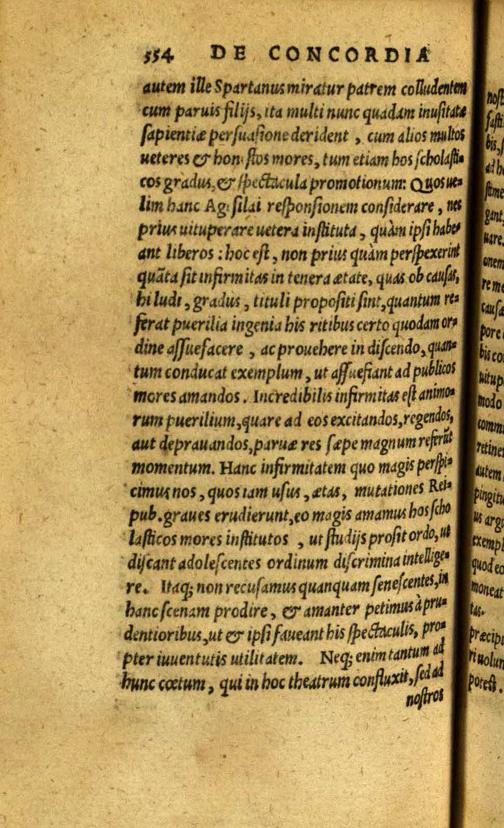 554 DE CONCORDIA
autem ille Spartanus miratur patrem colludentem
cum paruis filijs, ita multi nunc quadam inusitata
sapientiæ persuasione derident, cum alios multos
ueteres & honestos mores, tum etiam hos scholasti-
cos gradus, & spectacula promotionum: Quos ue-
lim hanc Agesilai responsionem considerare, nec
prius uituperare uetera instituta, quàm ipsi habe-
ant liberos: hoc est, non prius quàm perspexerint
quāta sit infirmitas in tenera ætate, quas ob causas,
hi ludi, gradus, tituli propositi sint, quantum re-
ferat puerilia ingenia his ritibus certo quodam or-
dine assuefacere, ac prouehere in discendo, quan-
tum conducat exemplum, ut assuefiant ad publicos
mores amandos. Incredibilis infirmitas est animo-
rum puerilium, quare ad eos excitandos, regendos,
aut deprauandos, paruæ res sæpe magnum referūt
momentum. Hanc infirmitatem quo magis perspi-
cimus nos, quos iam usus, ætas, mutationes Rei-
pub. graues erudierunt, eo magis amamus hos scho
lasticos mores institutos, ut studijs prosit ordo, ut
discant adolescentes ordinum discrimina intellige-
re. Itaq; non recusamus quanquam senescentes, in
hanc scenam prodire, & amanter petimus à pru-
dentioribus, ut & ipsi faueant his spectaculis, pro-
pter iuuentutis utilitatem. Neq; enim tantum ad
hunc cœtum, qui in hoc theatrum confluxit, sed ad
nostros